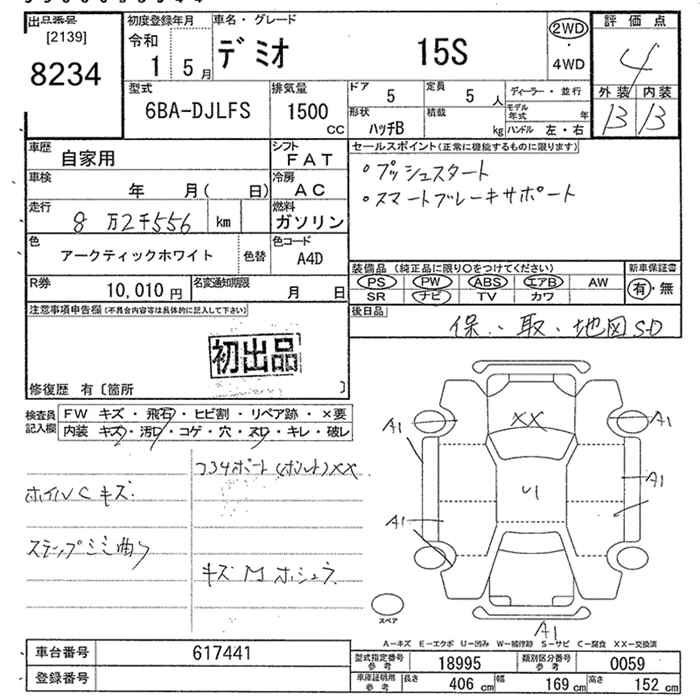 出品番号
[2139]
8234
初度登録年月
令和
1 5月
車名・グレード
デミオ 15S
2WD
・
4WD
評価点
4
外装 内装
B B
型式
6BA-DJLFS
排気量
1500
CC
ドア
5
定員
5 人
ディーラー・並行
形状
ハッチB
積載
kg
モデル年式 年
ハンドル 左・右
車歴
自家用
シフト
FAT
車検
年 月( 日)
冷房
AC
走行
8万2千556 km
燃料
ガソリン
色
アークティックホワイト
色替
色コード
A4D
R券
10,010円
名変通知期限
月 日
セールスポイント(正常に機能するものに限ります)
・プッシュスタート
・スマートブレーキサポート
装備品(純正品に限り○をつけてください)
PS PW ABS エアB AW
SR ナビ TV カワ
新車保証書
有・無
後日品
保、取、地図SD
注意事項申告欄(不具合内容等は具体的に記入して下さい)
初出品
修復歴 有〔箇所 〕
検査員
記入欄
FW キズ・飛石・ヒビ割・リペア跡・×要
内装 キズ・汚れ・コゲ・穴・ネジ・キレ・破レ
ホイルC キズ
ステップミミ曲り
コ34ボート(ボルト)XX
キズM ホシュウ
A1
XX
A1
U1
A1
A1
A1
スペア
A-キズ E-エクボ U-凹み W-補修跡 S-サビ C-腐食 XX-交換済
車台番号
617441
登録番号
型式指定番号
参考
18995
類別区分番号
参考
0059
車庫証明用
参考
長さ 406cm
幅 169cm
高さ 152cm